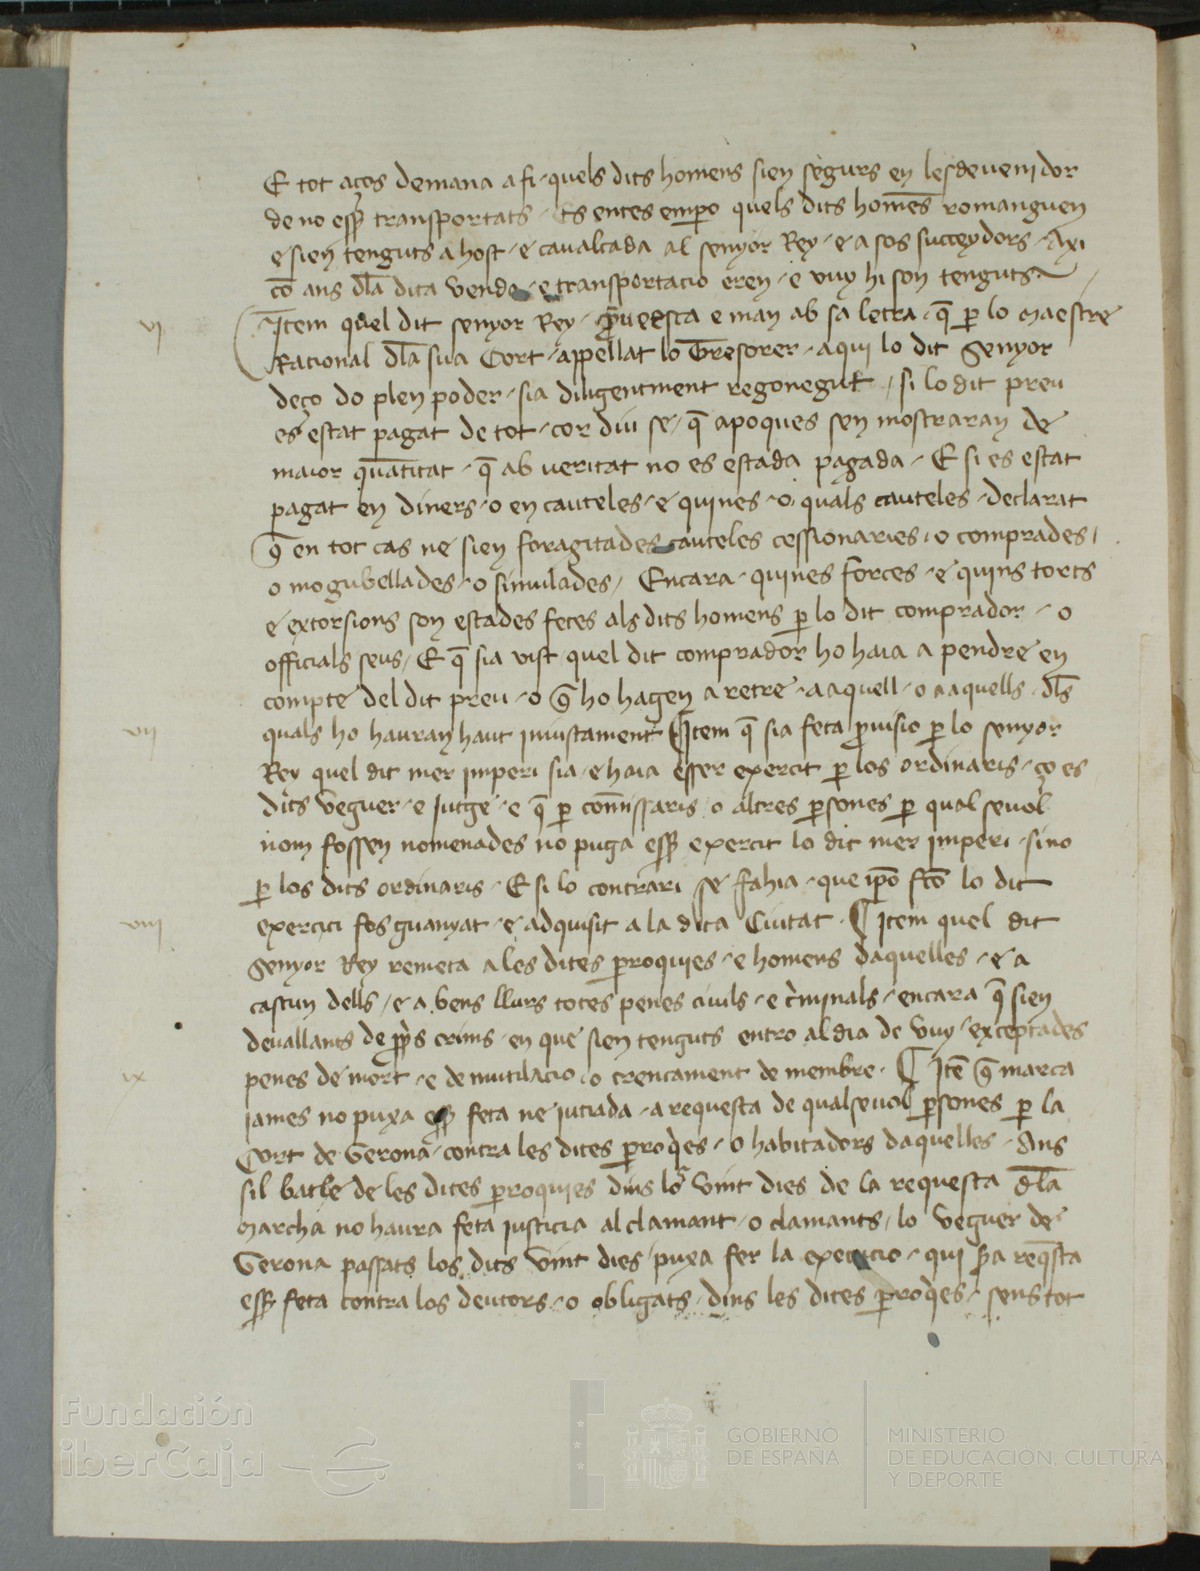 E tot aços demana a fi quels dits homens sien segurs en lesdevenidor
de no esser transportats. Es entes empero quels dits homens romanguen
e sien tenguts a host e cavalcada al senyor Rey e a sos succeydors Axi
co ans dla dita venda e transportacio eren e vuy hi son tenguts
vi
Item quel dit senyor Rey e man ab sa letra q per lo maestre
Racional dla sua Cort appellat lo Tresorer aqui lo dit Senyor
deço do plen poder sia diligentment regonegut si lo dit preu
es estat pagat de tot cor diu se q apoques sen mostraran de
maior quantitat q ab veritat no es estada pagada E si es estat
pagat en diners o en cauteles e quines o quals cauteles declarat
q en tot cas ne sien foragitades cauteles cessionaries o comprades
o mogubellades o simulades Encara quines forces e quins torts
e extorsions son estades fetes als dits homens per lo dit comprador o
officials seus E q sia vist quel dit comprador ho haia a pendre en
compte del dit preu o q ho hagen a retre a aquell o a aquells dls
vii
quals ho hauran haut iniustament ¶ Item q sia feta provisio per lo senyor
Rey quel dit mer imperi sia e haia esser exercit per los ordinaris ço es
dits veguer e jutge e q per comissaris o altres persones per qual sevol
nom fossen nomenades no puga esser exercit lo dit mer imperi sino
per los dits ordinaris E si lo contrari se fahia que ipo fco lo dit
viii
exercici fos guanyat e adquisit a la dita Ciutat ¶ Item quel dit
Senyor Rey remeta a les dites parroquies e homens daquelles e a
cascun dells e a bens llurs totes penes civils e criminals encara q sien
devallants de crims en que sien tenguts entro al dia de vuy exceptades
ix
penes de mort e de mutilacio o trencament de membre ¶ Ite q marca
iames no puxa esser feta ne jutiada a requesta de qualsevol persones per la
Cort de Gerona contra les dites parroques o habitadors daquelles Ans
sil batle de les dites parroquies dins vint dies de la requesta dla
marcha no haura feta justicia al clamant o clamants lo veguer de
Gerona passats los dits vint dies puxa fer la execucio qui sera reqsta
esser feta contra los deutors o obligats dins les dites parroques sens tot
Fundación
iberCaja
GOBIERNO
DE ESPAÑA
MINISTERIO
DE EDUCACIÓN, CULTURA
Y DEPORTE